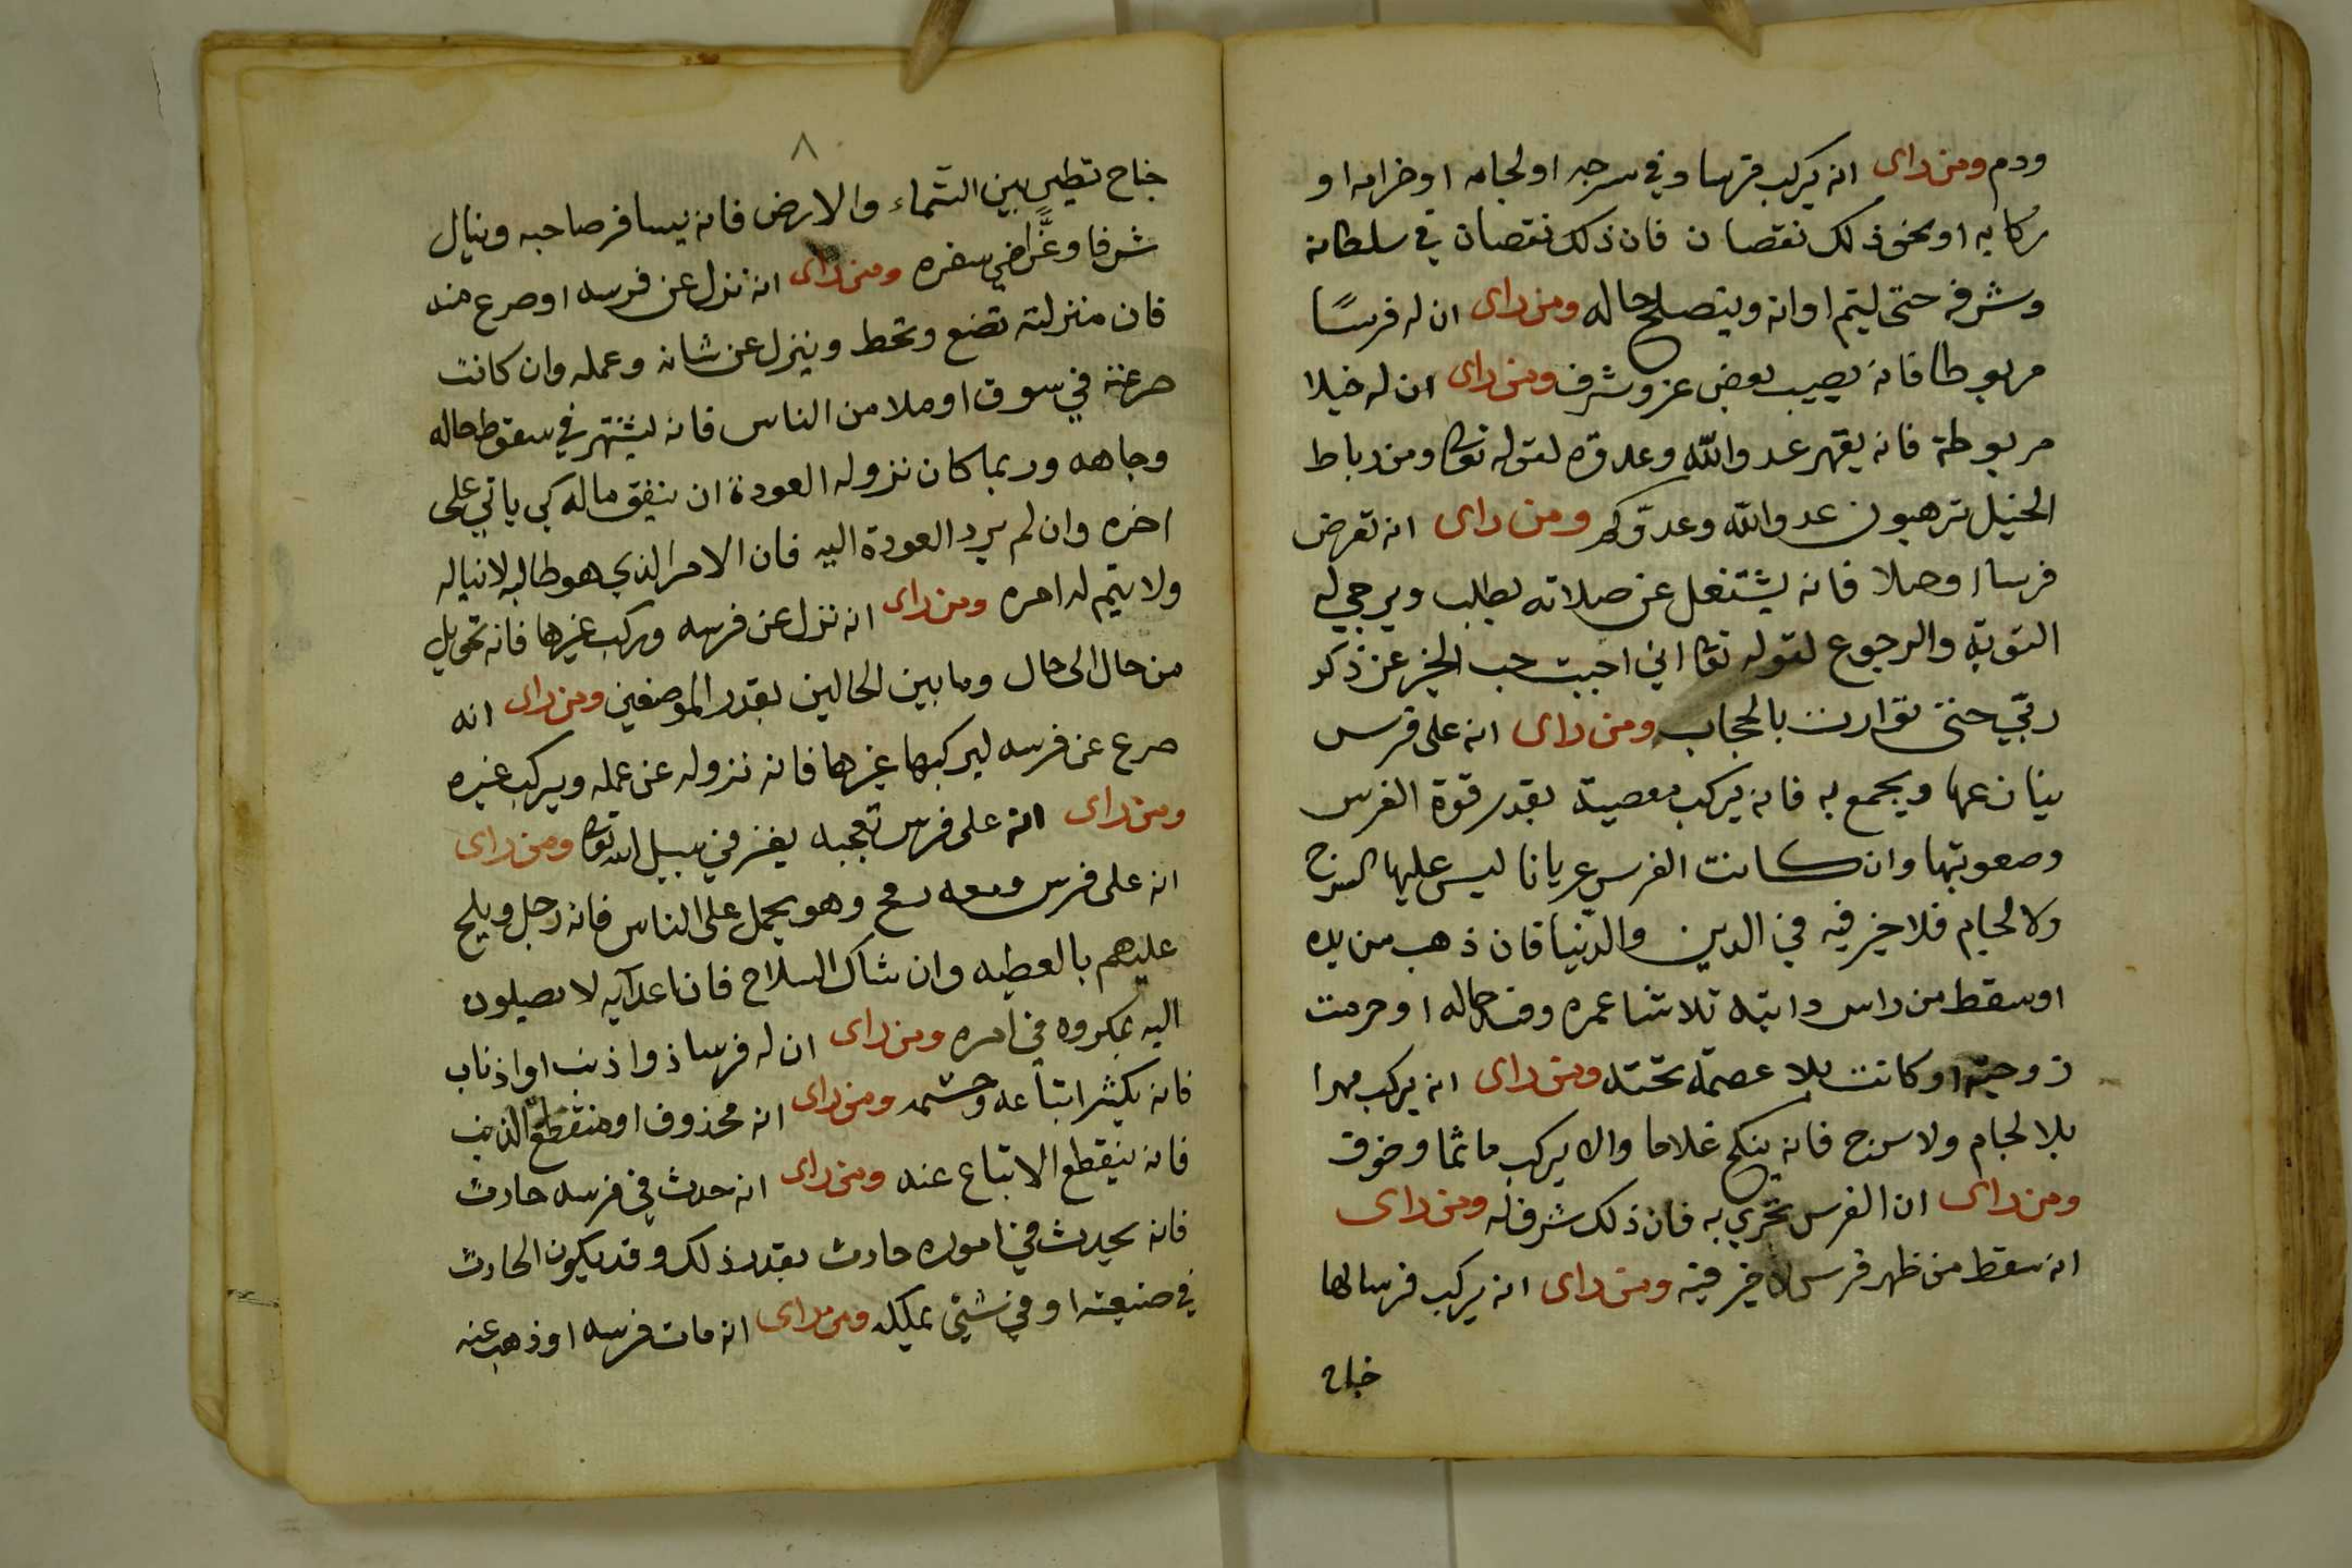 ودم ومن راى انه يركب فرسا وفي سرجه او لجامه او خزامه او
ركابه او نحو ذلك نقصان فان ذلك نقصان في سلطانه
وشرفه حتى ليتم اوانه ويتصلح حاله ومن راى ان له فرسًا
مربوطا فانه يصيب بعض عز وشرف ومن راى ان له خيلا
مربوطة فانه يقهر عدو الله وعدوه لقوله تعا ومن رباط
الخيل ترهبون عدو الله وعدوّكم ومن راى انه تعرض
فرسا اوصلا فانه يشتغل عن صلاته بطلب ويرجي له
التوبة والرجوع لقوله تعا اني احببت حب الخير عن ذكر
ربّي حتى توارت بالحجاب ومن راى انه على فرس
ويجمع به فانه يركب معصية بقدر قوة الفرس
وصعوبتها وان كانت الفرس عريانا ليس عليها السرج
ولا لجام فلا خير فيه في الدين والدنيا فان ذهب من يده
او سقط من راس دابته تلاشا عمره وفسد حاله او حرمت
زوجته او كانت بلا عصمة تحته ومن راى انه يركب مهرا
بلا لجام ولا سرج فانه ينكح غلاما والا يركب ماثما وخوف
ومن راى ان الفرس تجري به فان ذلك شرف له ومن راى
انه سقط من ظهر فرس لا خير فيه ومن راى انه يركب فرسا لها
جناح
٨
جناح تطير بين السّماء والارض فانه يسافر صاحبه وينال
شرفا وعزّا في سفره ومن راى انه نزل عن فرسه او صرع عنه
فان منزلته تضع وتحط وينزل عن شانه وعمله وان كانت
صرعته في سوق او ملا من الناس فانه يشتهر في سقوط حاله
وجاهه وربما كان نزوله العودة ان ينفق ماله كي ياتي على
اخره وان لم يرد العودة اليه فان الامر الذي هو طالبه لا يناله
ولا يتم له امره ومن راى انه نزل عن فرسه وركب غيرها فانه تحويل
من حال الى حال وما بين الحالين بقدر الموضعين ومن راى انه
صرع عن فرسه ليركبها غيرها فانه نزوله عن عمله ويركب غيره
ومن راى انه على فرس تعجبه يغز في سبيل الله تعا ومن راى
انه على فرس ومعه رمح وهو يحمل على الناس فانه رجل ويلح
عليهم بالعطيه وان شاك السلاح فان اعدآيه لا يصيلون
اليه بمكروه في امره ومن راى ان له فرسا ذوا ذنب او اذناب
فانه يكثر اتباعه وحشمه ومن راى انه محذوف او منقطع الذنب
فانه ينقطع الاتباع عنه ومن راى انه حدث في فرسه حادث
فانه يحدث في اموره حادث بقدر ذلك وقد يكون الحادث
في صنيعته او في شيئ يملكه ومن راى انه مات فرسه او ذهب عنه